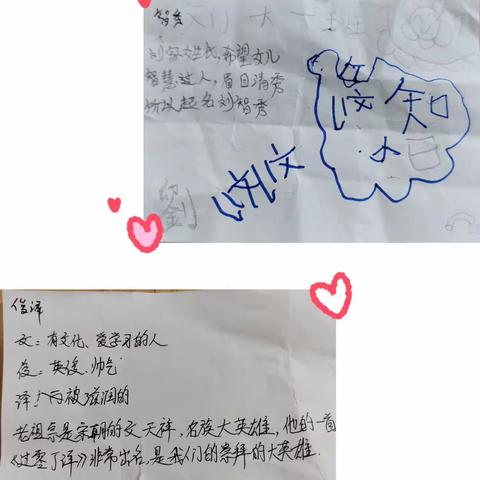 智秀
大一班
刘家姓氏,希望女儿
智慧过人,眉目清秀
所以起名刘智秀
知
刘
俊泽
文:有文化、爱学习的人
俊:英俊、帅气
泽:被滋润的
老祖宗是宋朝的文天祥,名族大英雄,他的一首
《过零丁洋》非常出名,是我们的崇拜的大英雄.